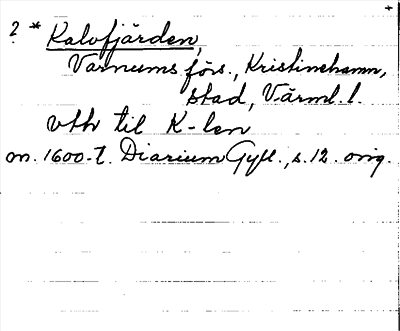 ? * Kalvfjärden,
Varnums förs., Kristinehamn,
stad, Värml. l.
vth til K-len
om. 1600-t. Diarium Gyll., s. 12. orig.